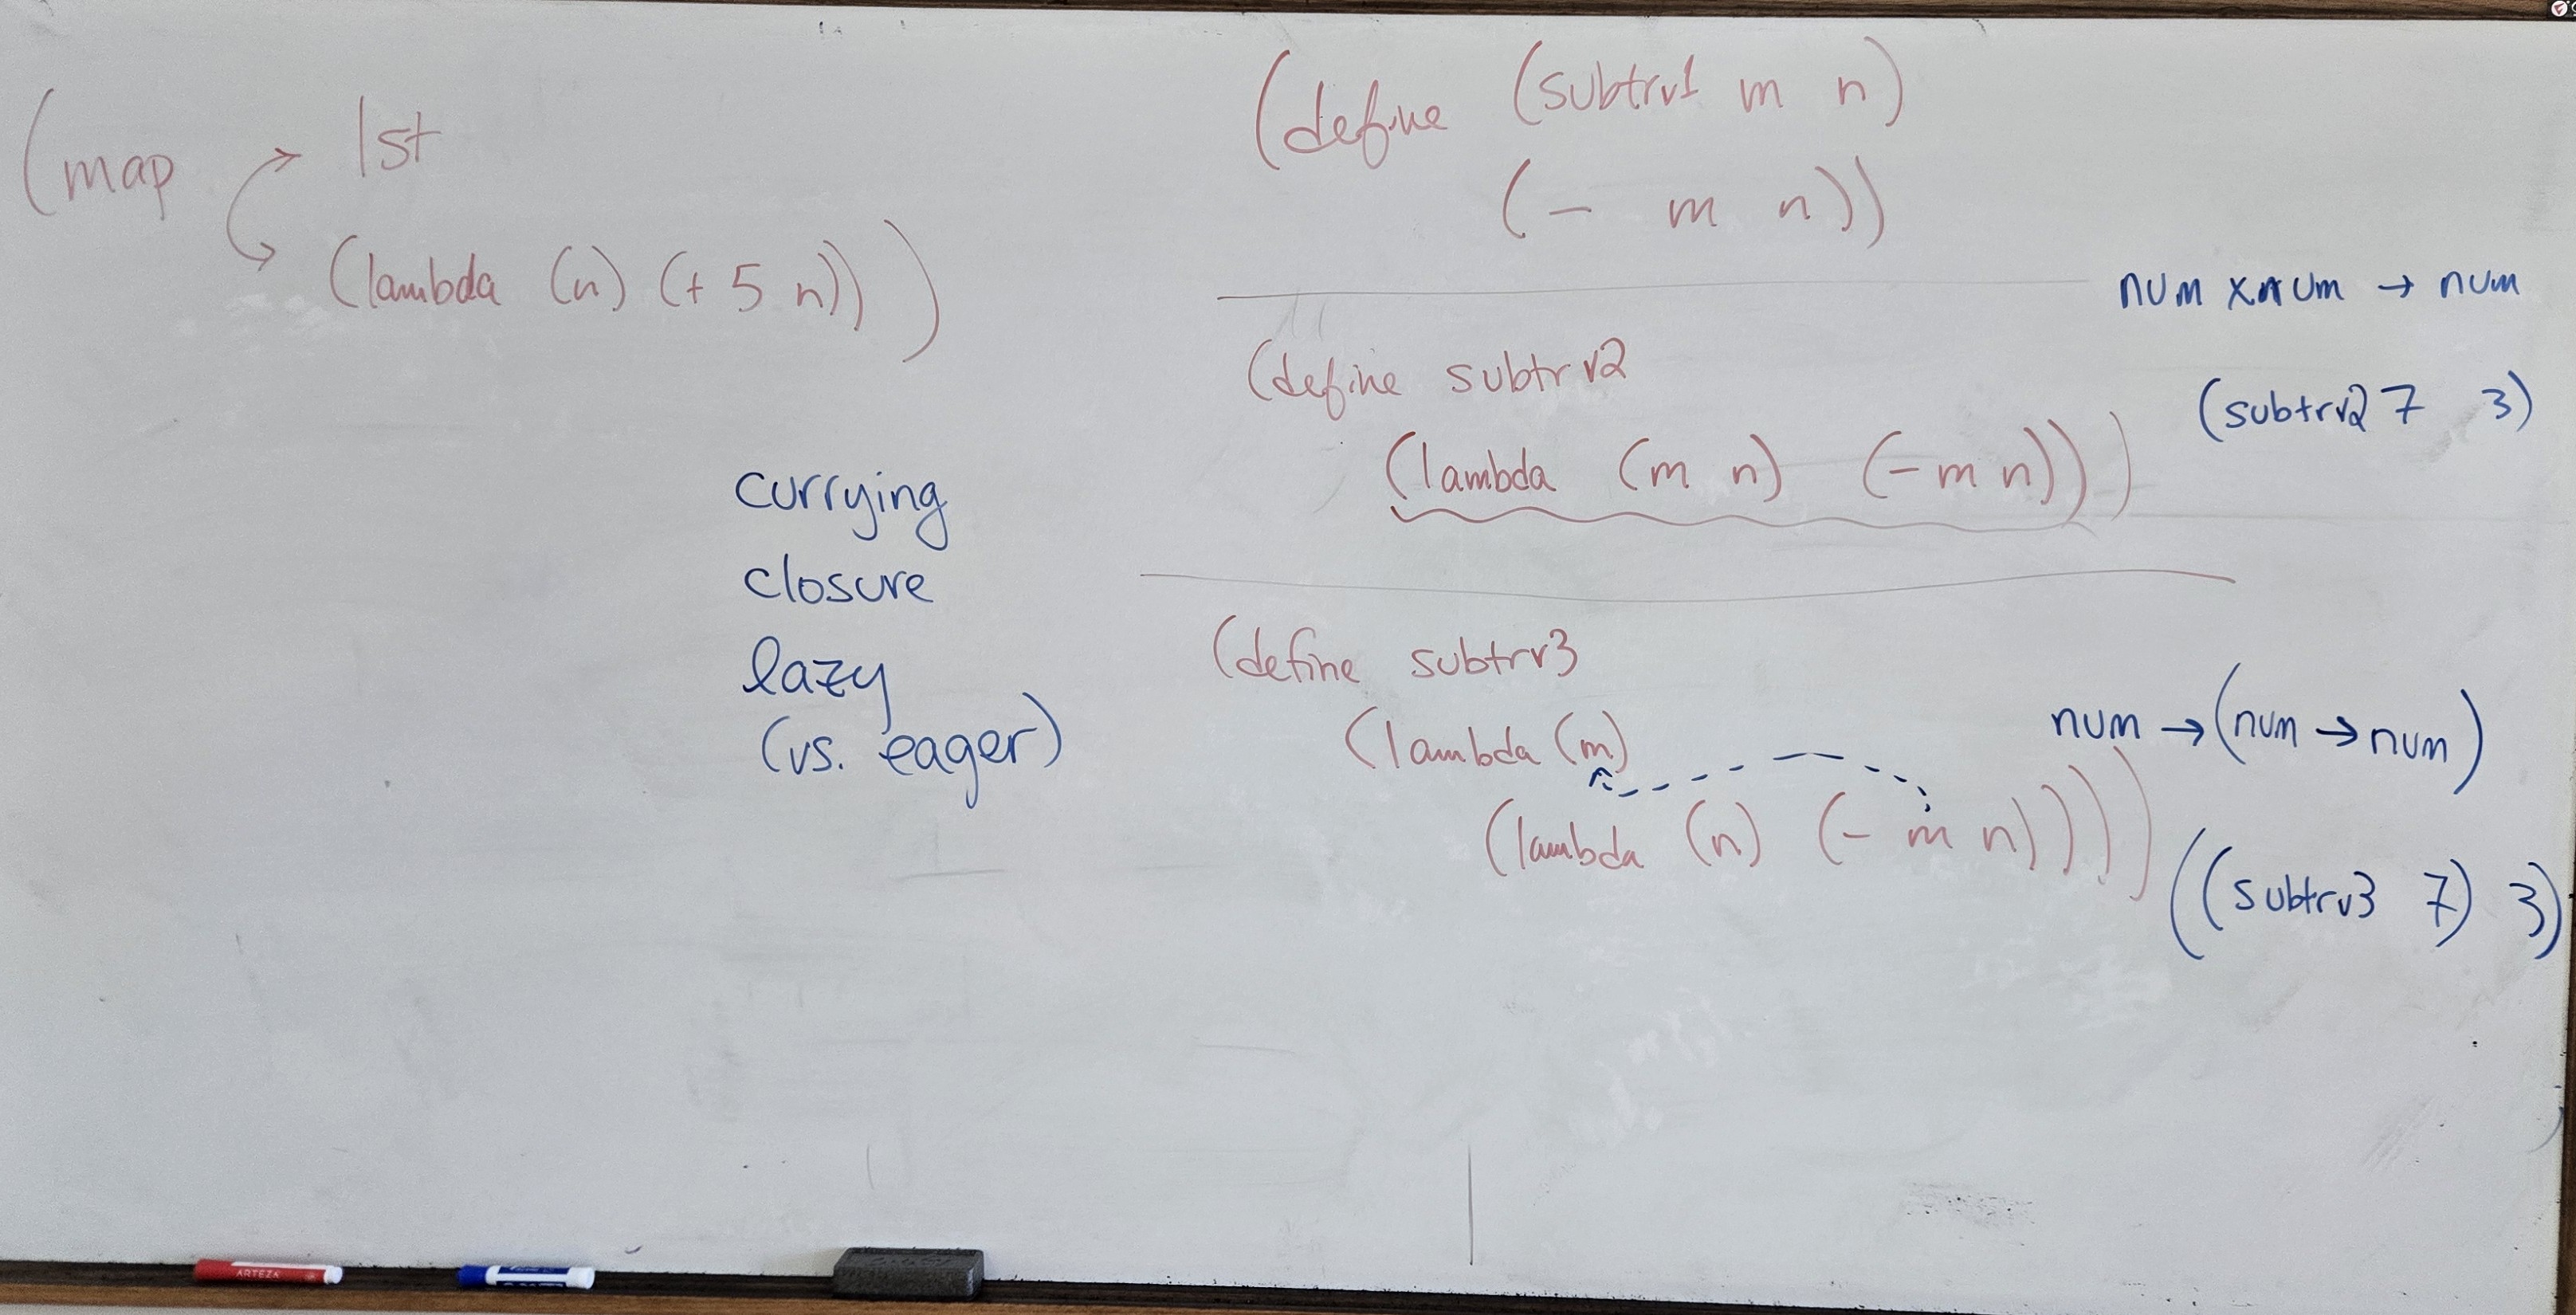 (map lst
(lambda (n) (+ 5 n)))
currying
closure
lazy
(vs. eager)
(define (subtrv1 m n)
(- m n))
num x num → num
(define subtrv2
(subtrv2 7 3)
(lambda (m n) (- m n)))
(define subtrv3
(lambda (m)
num → (num → num)
(lambda (n) (- m n))))
((subtrv3 7) 3)
ARTEZA